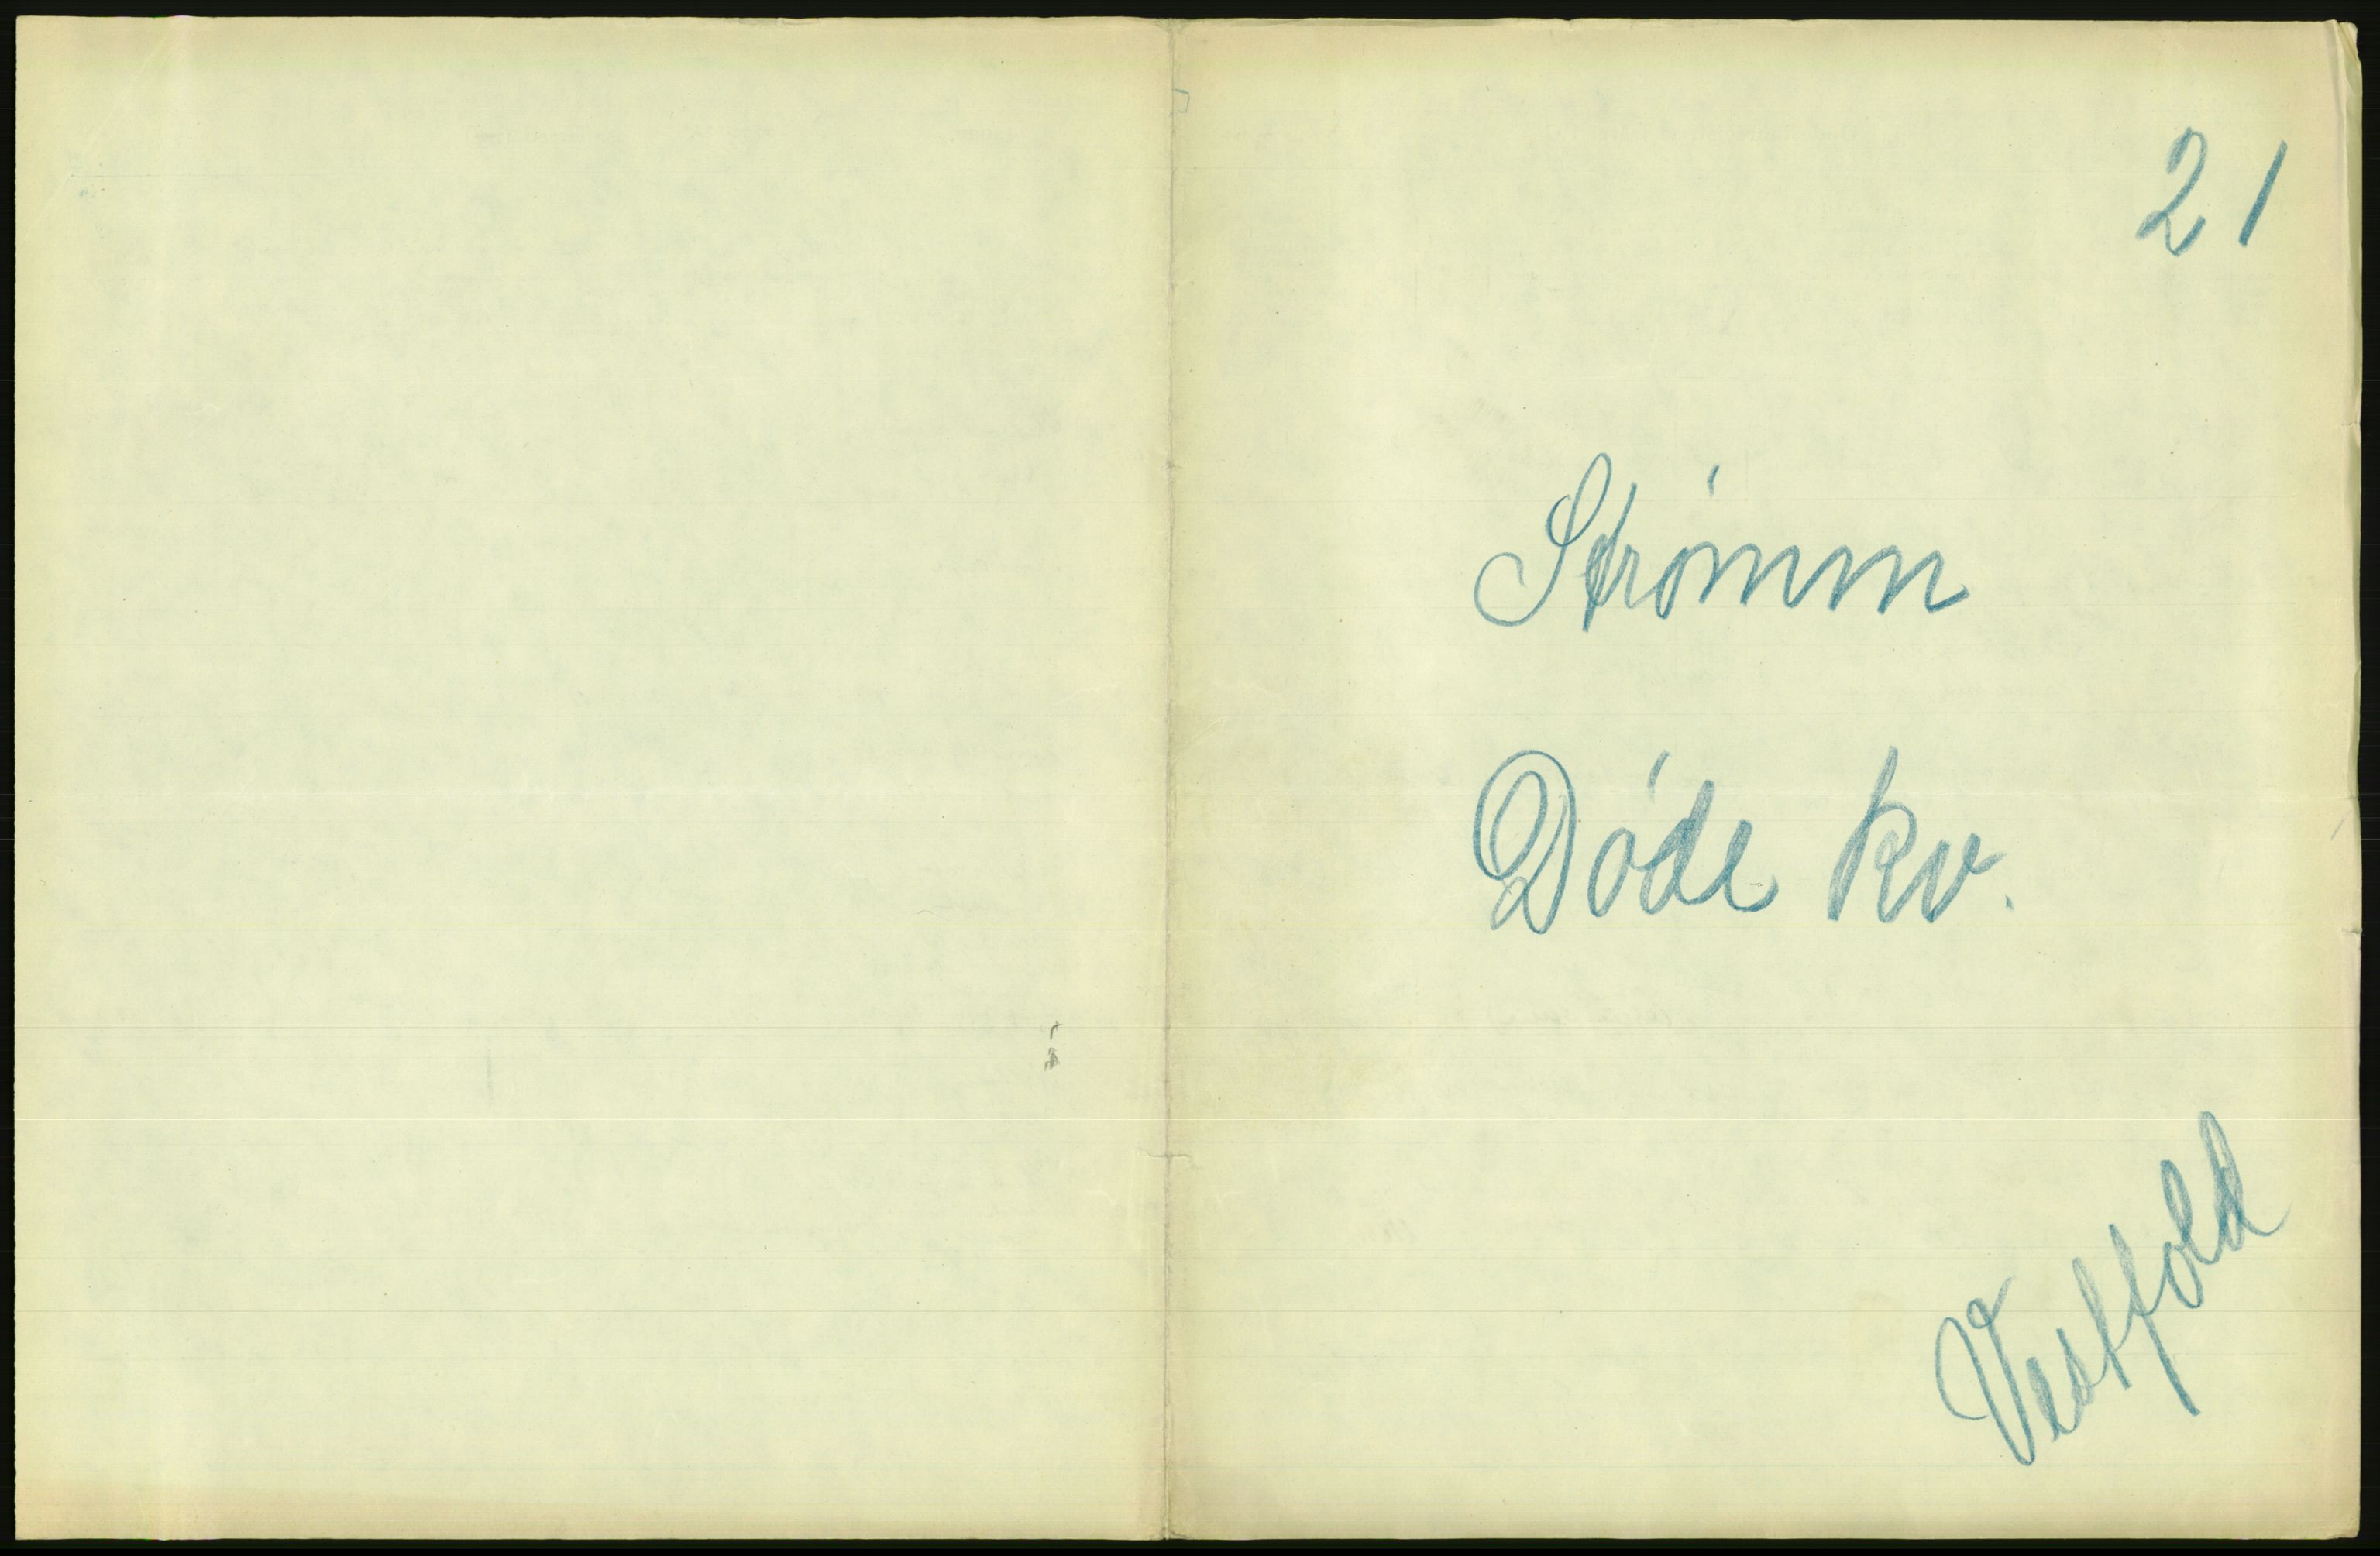 21
Strømm
Døde kv.
Vestfold